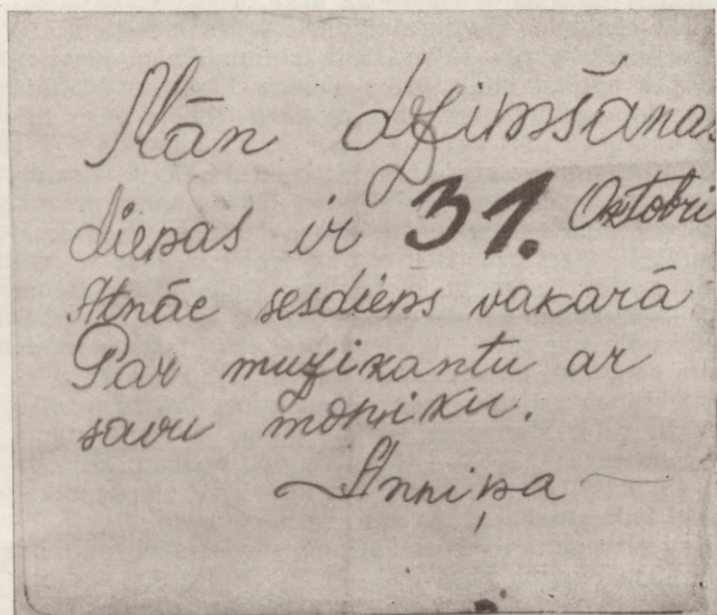 Mān dzimšanas
dienas ir 31. Oktobri
Atnāc sesdiens vakarā
Par muzikantu ar
savu moņiku.
Anniņa